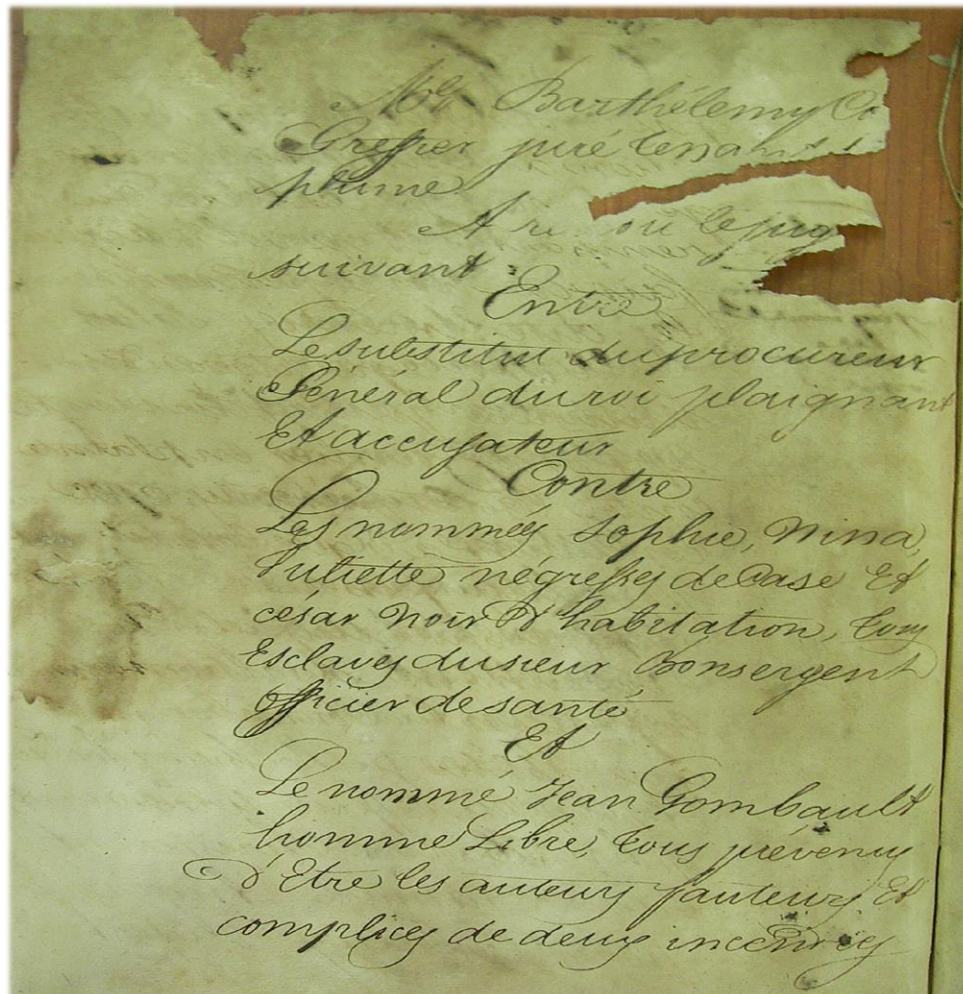 Mr Barthélemy Co
Greffier juré tenant l
plume
A re ou le jug
suivant
Entre
Le substitut du procureur
Général du roi plaignant
Et accusateur
Contre
Les nommés Sophie, Nina,
Juliette négresses de Case Et
césar Noir D'habitation, tous
Esclaves du sieur Bonsergent
officier de santé
Et
Le nommé Jean Gombault
homme Libre, tous prévenus
D'Etre les auteurs fauteurs Et
complices de deux incendies